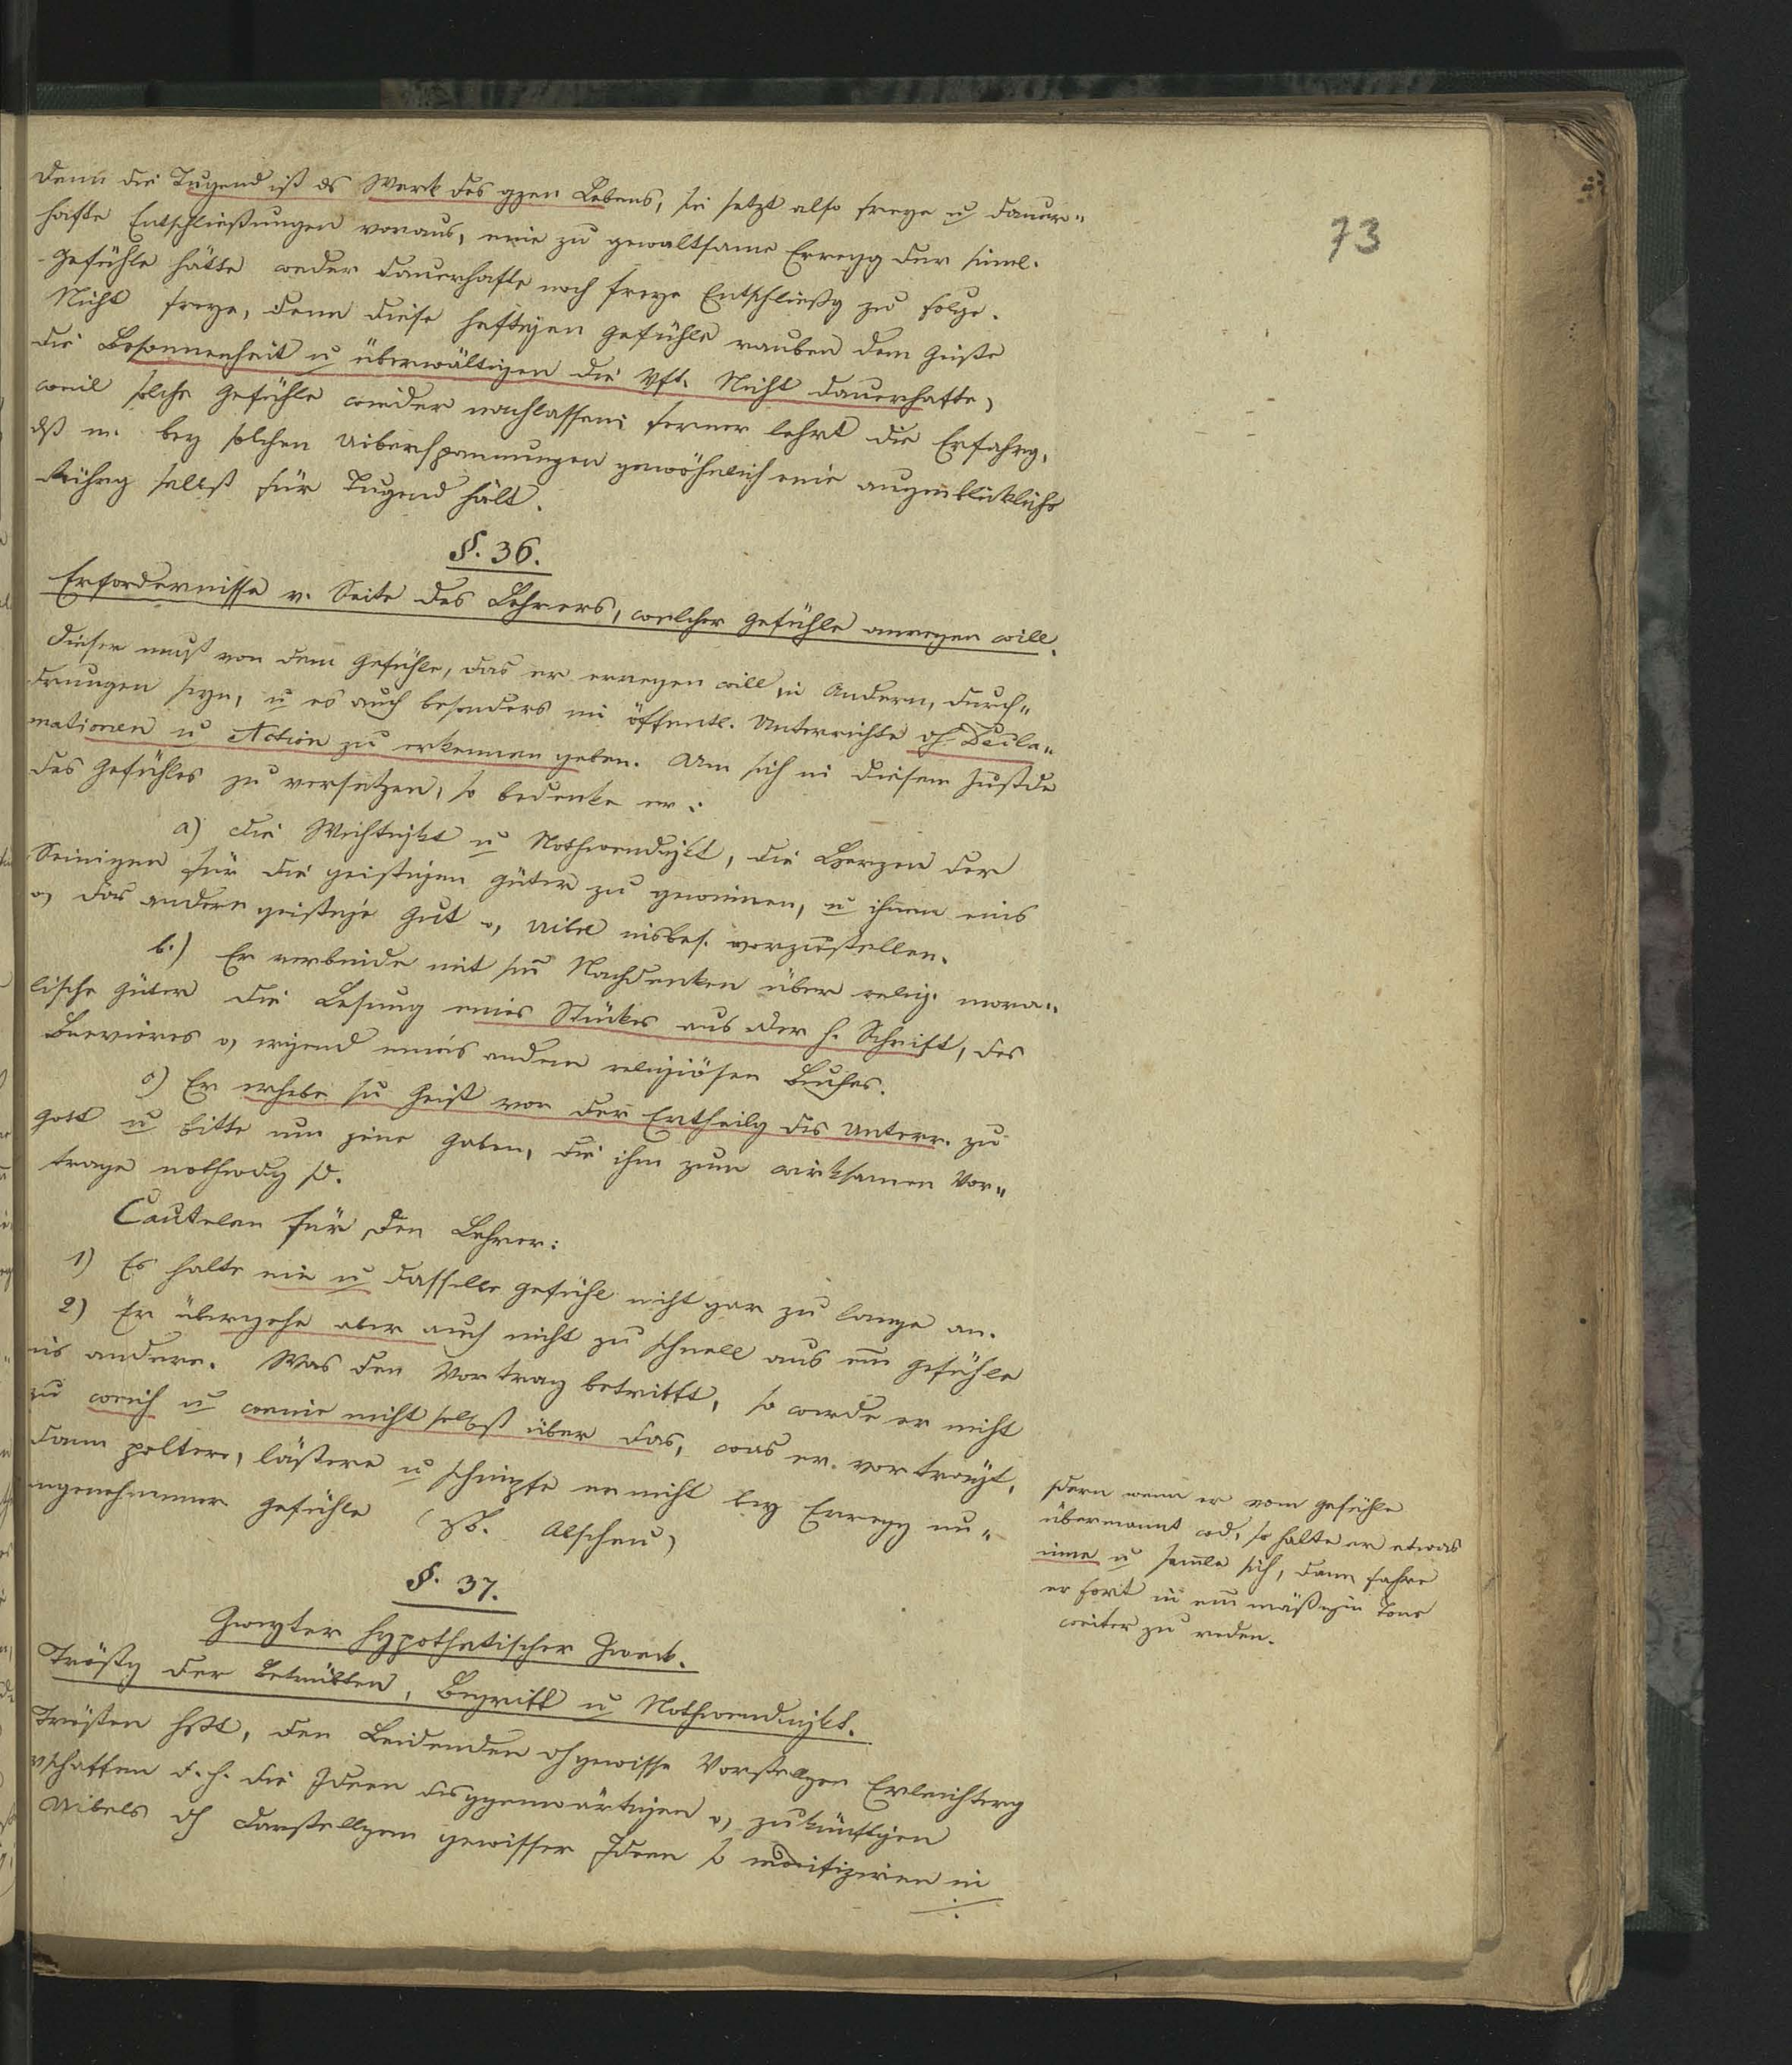 73
denn die Tugend ist ds Werk des gzen Lebens, sie setzt also freye u daur„
hafte Entschließungen voraus, eine zu gewaltsame Erregg der sinnl.
Gefühle hätte weder dauerhafte noch freye Entschließg zu Folge.
Nicht freye, denn diese heftigen Gefühle rauben dem Geiste
die Besonnenheit u überwältigen die Vft. Nicht dauerhafte,
weil solche Gefühle wieder nachlassen; ferner lehrt die Erfahrg,
dß m. bey solchen Uiberspannungen gewöhnlich eine augenblickliche
Rührg selbst für Tugend hält.
§. 36.
Erfordernisse v. Seite des Lehrers, welcher Gefühle anregen will.
Dieser muß von dem Gefühle, das er erregen will in Andern, durch„
drungen seyn, u es auch besonders im öffentl. Unterrichte dh Decla„
mationen u Action zu erkennen geben. Um sich in diesem Zustde
des Gefühles zu versetzen, so bedenke er:
a) die Wichtigkt u Nothwendigkt, die Herzen der
Seinigen für die geistigen Güter zu gewinnen, u ihnen eins
o, das andere geistige Gut o, Uibel insbes. vorzustellen.
b.) Er verbinde mit sm Nachdenken über relig. mora„
lische Güter die Lesung eines Stückes aus der h. Schrift, des
Breviers o, irgend eines andern religiösen Buches.
c) Er erhebe sn Geist vor der Ertheilg des Unterr. zu
Gott u bitte um jene Gaben, die ihm zum wirksamen Vor„
trage nothwdg sd.
Cautelen für den Lehrer:
1) Er halte ein u dasselbe Gefühl nicht gar zu lange an.
2) Er übergehe aber auch nicht zu schnell aus em Gefühle
ins andere. Was den Vortrag betrifft, so werde er nicht
zu weich u weine nicht selbst über das, was er vorträgt,
sdern wenn er vom Gefühle
übermannt wd, so halte er etwas
inne u samle sich, dann fahre
er fort in em mäßigen Tone
weiter zu reden.
dann poltere, lästere u schimpfe er nicht bey Erregg un„
angenehmer Gefühle (zB. Abscheu)
§. 37.
Zweyter hypothetischer Zweck.
Tröstg der Betrübten, Begriff u Nothwendigkt.
Trösten hßt, den Leidenden dh gewisse Vorstellgen Erleichterg
vschaffen d. h. die Ideen des ggenwärtigen o, zukünftigen
Uibels dh Darstellgen gewisser Ideen so modifiziren in